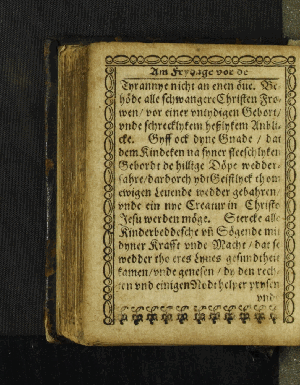 Am Frydage vor de
Tyrannye nicht an enen öue. Be-
höde alle schwangere Christen Fro-
wen / vor einer vntydigen Gebort /
vnde schrecklykem heßlykem Anbli-
cke. Gyff ock dyne Gnade / dat
dem Kindeken na syner fleeschlyken
Gebordt de hillige Döpe wedder-
fahre / dardorch ydt Geistlyck thom
ewigen Leuende wedder gebahren /
vnde ein nye Creatur in Christo
Jesu werden möge. Stercke alle
Kinderbeddesche vñ Sögende mit
dyner Krafft vnde Macht / dat se
wedder tho eres Lyues gesundtheit
kamen / vnde genesen / dy den rech-
ten vnd einigen Nodthelper prysen
vnd